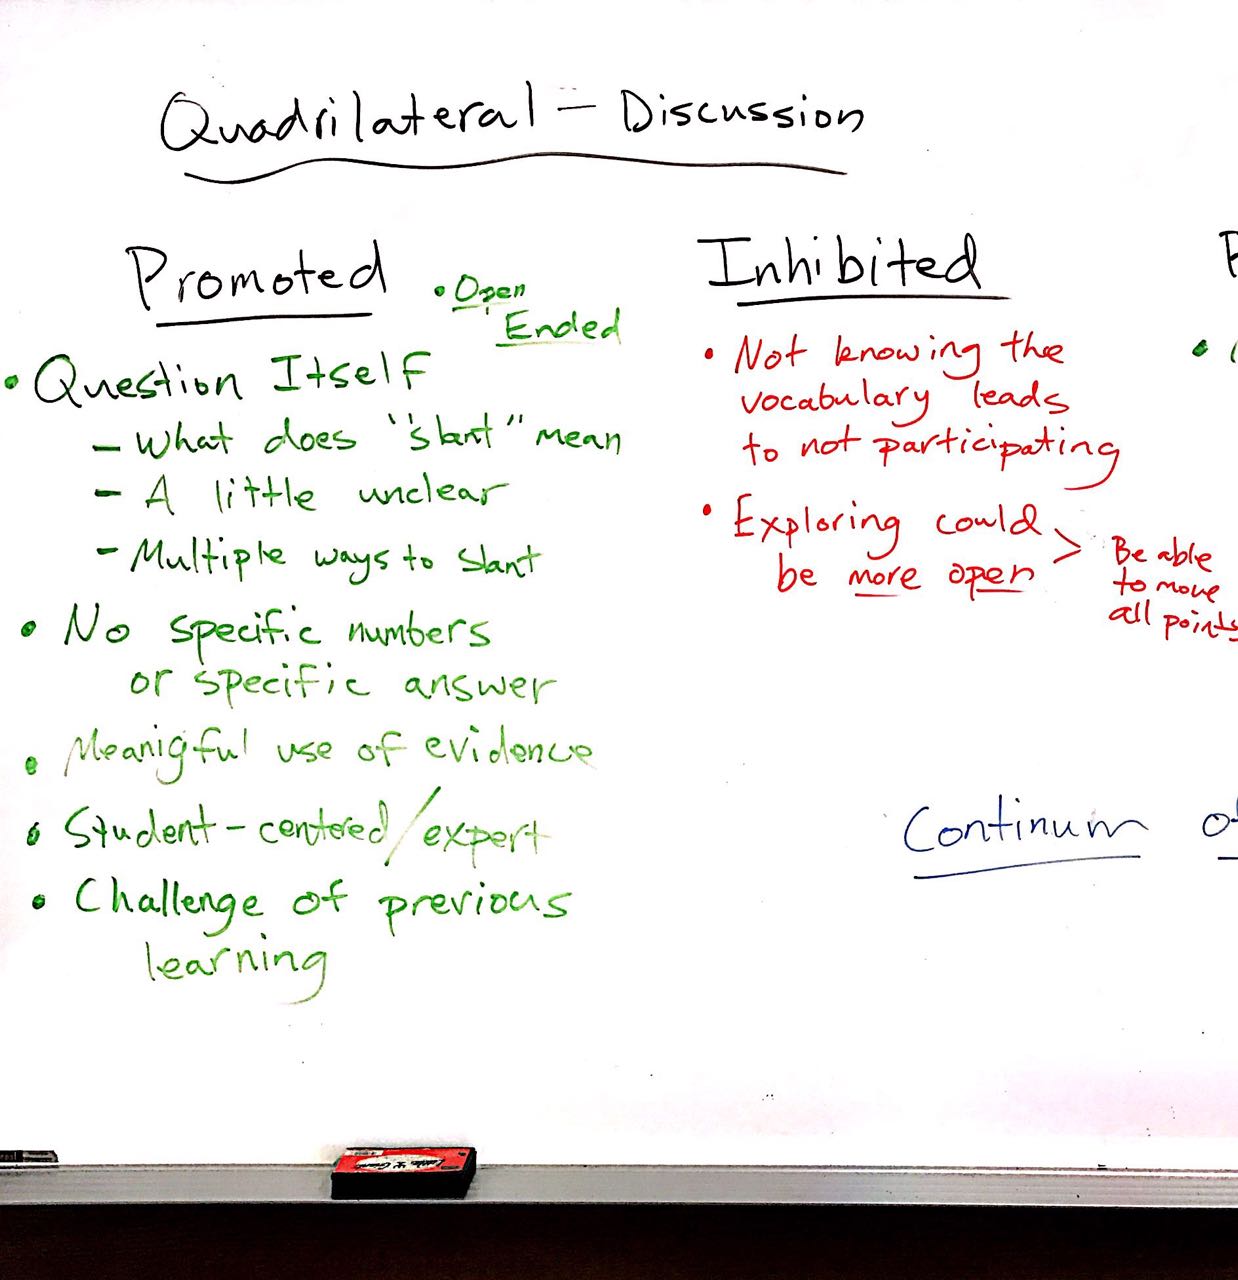 Quadrilateral - Discussion
Promoted
• Open
Ended
• Question Itself
- What does "slant" mean
- A little unclear
- Multiple ways to slant
• No specific numbers
or specific answer
• Meanigful use of evidence
• Student-centered/expert
• Challenge of previous
learning
Inhibited
• Not knowing the
vocabulary leads
to not participating
• Exploring could
be more open
> Be able
to move
all points
Continum